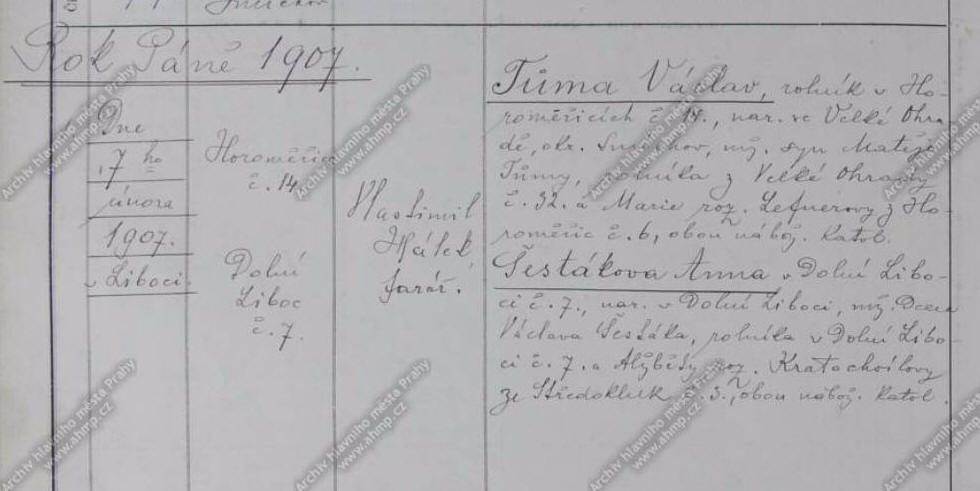 Rok Páně 1907.
Dne
17 ho
února
1907.
v Liboci.
Horoměřice
č. 14.
Dolní
Liboc
č. 7.
Vlastimil
Hálek
farář.
Tůma Václav, rolník v Ho-
roměřicích č. 14., nar. ve Velké Ohra
dě, okr. Smíchov, mž. syn Matěje
Tůmy, rolníka z Velké Ohrady
č. 32. a Marie roz. Lefnerovy z Ho-
roměřic č. 6, obou nábož. katol.
Šestákova Anna v Dolní Libo-
ci č. 7., nar. v Dolní Liboci, mž. Dcera
Václava Šestáka, rolníka v Dolní Libo-
ci č. 7. a Alžběty roz. Kratochvílovy
ze Středokluk č. 3., obou nábož. katol.
Archiv hlavního města Prahy
www.ahmp.cz